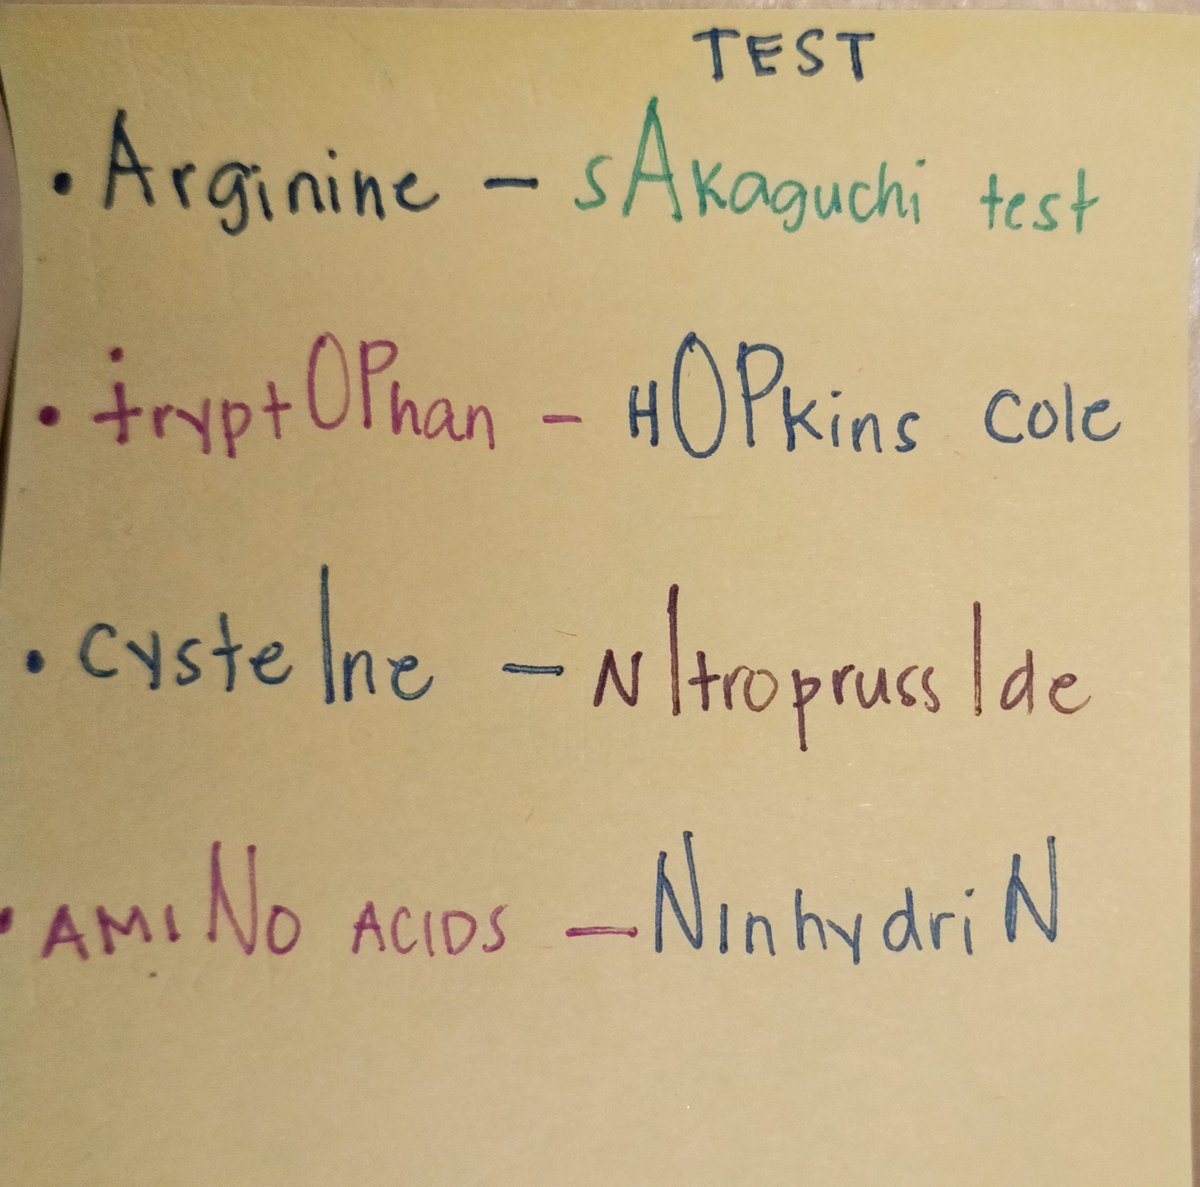 TEST
• Arginine – sAkaguchi test
• tryptOPhan – HOPkins Cole
• cysteIne – NItroprussIde
• AMINO ACIDS – NinhydriN